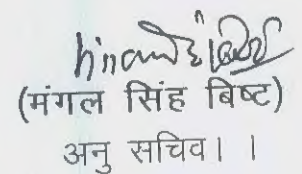 (मंगल सिंह बिष्ट)
अनु सचिव।।